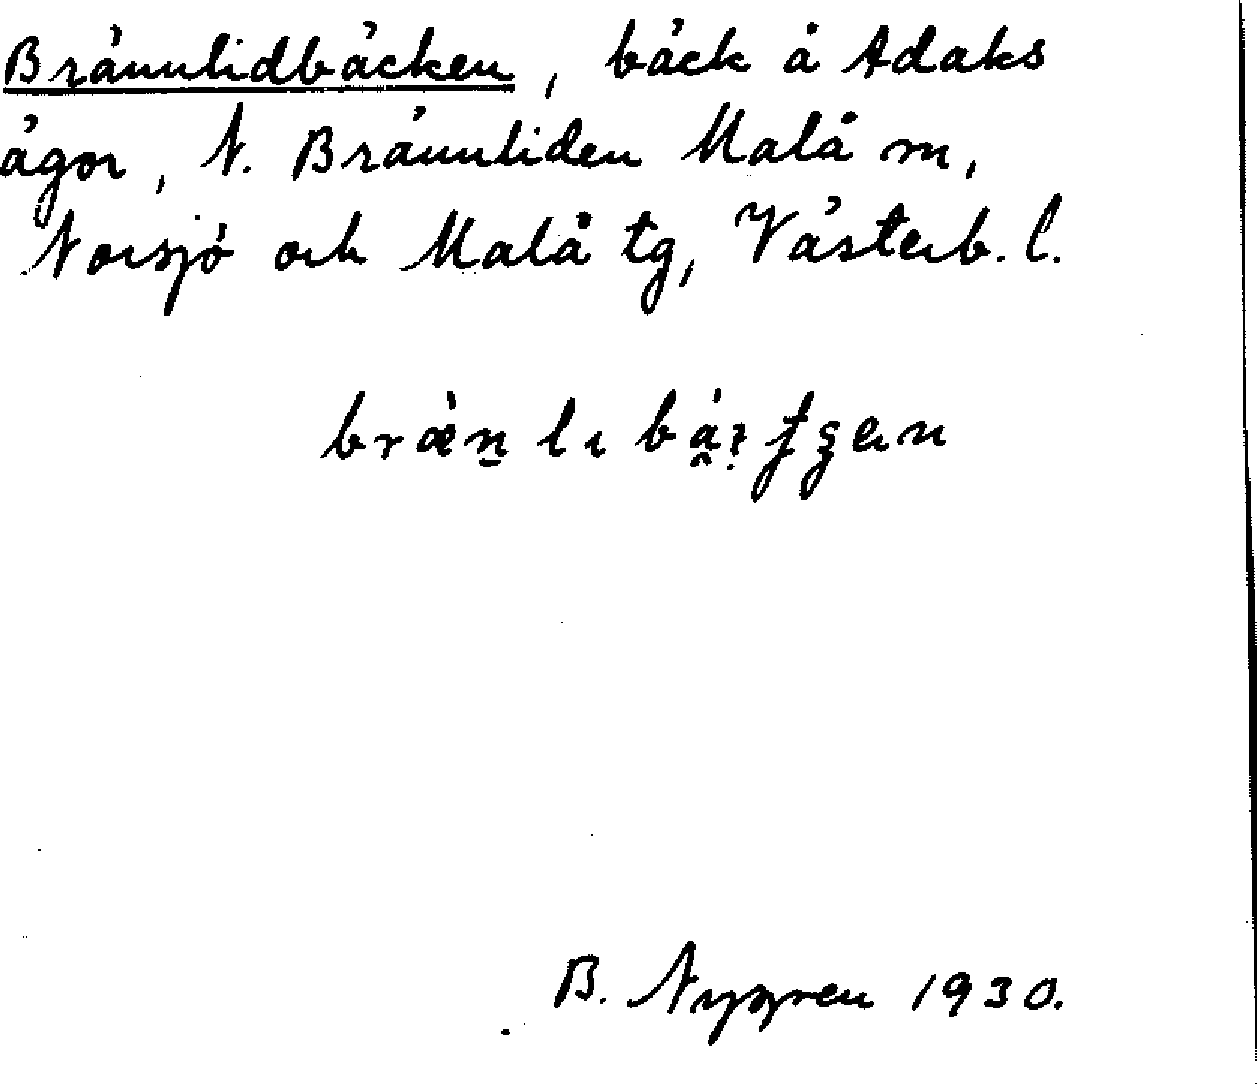 Brännlidbäcken, bäck å Adaks
ägor, N. Brännliden Malå m,
Norsjö och Malå tg, Västerb. l.
B. Nygren 1930.